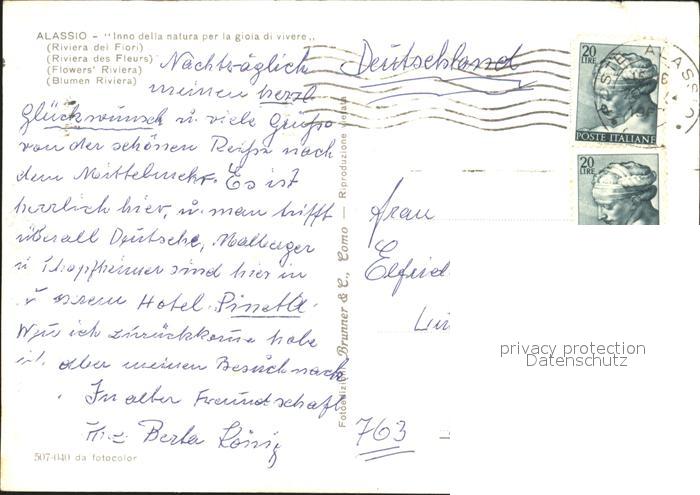 ALASSIO - "Inno della natura per la gioia di vivere"
(Riviera dei Fiori)
(Riviera des Fleurs)
(Flowers' Riviera)
(Blumen Riviera)
Nachträglich
meinen herzl
Glückwunsch u. viele Grüße
von der schönen Reise nach
dem Mittelmeer. Es ist
herrlich hier, u. man trifft
überall Deutsche, Malberger
u Schopfheimer sind hier in
unserem Hotel Pineta.
Wenn ich zurückkomme hole
ich aber meinen Besuch nach
In alter Freundschaft
Berta König
507-040 da fotocolor
Fotoedizioni Brunner & C., Como — Riproduzione vietata
Deutschland
20
LIRE
POSTE ITALIANE
20
LIRE
ALASSIO
Frau
Elfried
763
privacy protection
Datenschutz